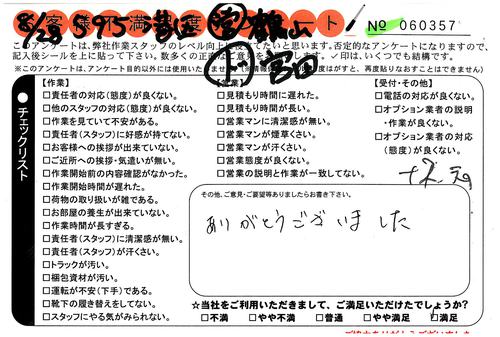 8/28
No 060357
このアンケートは、弊社作業スタッフのレベル向上に役立てたいと思います。否定的なアンケートになりますので、
記入後シールを上に貼って下さい。数多くの正直なご意見を
✓印は、いくつでも結構です。
※このアンケートは、アンケート目的以外には使用いたしません
シールは、再度貼りなおすことはできません)
チェックリスト
【作業】
□責任者の対応(態度)が良くない。
□他のスタッフの対応(態度)が良くない。
□作業を見ていて不安がある。
□責任者(スタッフ)に好感が持てない。
□お客様への挨拶が出来ていない。
□ご近所への挨拶・気遣いが無い。
□作業開始前の内容確認がなかった。
□作業開始時間が遅れた。
□荷物の取り扱いが雑である。
□お部屋の養生が出来ていない。
□作業時間が長すぎる。
□責任者(スタッフ)に清潔感が無い。
□責任者(スタッフ)が汗くさい。
□トラックが汚い。
□梱包資材が汚い。
□運転が不安(下手)である。
□靴下の履き替えをしてない。
□スタッフにやる気がみられない。
【営業】
□見積もり時間に遅れた。
□見積もり時間が長い。
□営業マンに清潔感が無い。
□営業マンが煙草くさい。
□営業マンが汗くさい。
□営業態度が良くない。
□営業の説明と作業が一致してない。
【受付・その他】
□電話の対応が良くない。
□オプション業者の説明
・作業が良くない。
□オプション業者の対応
(態度)が良くない。
その他、ご意見・ご要望等ありましたらお書き下さい。
ありがとうございました
☆当社をご利用いただきまして、ご満足いただけたでしょうか?
□不満 □やや不満 □普通 □やや満足 □満足